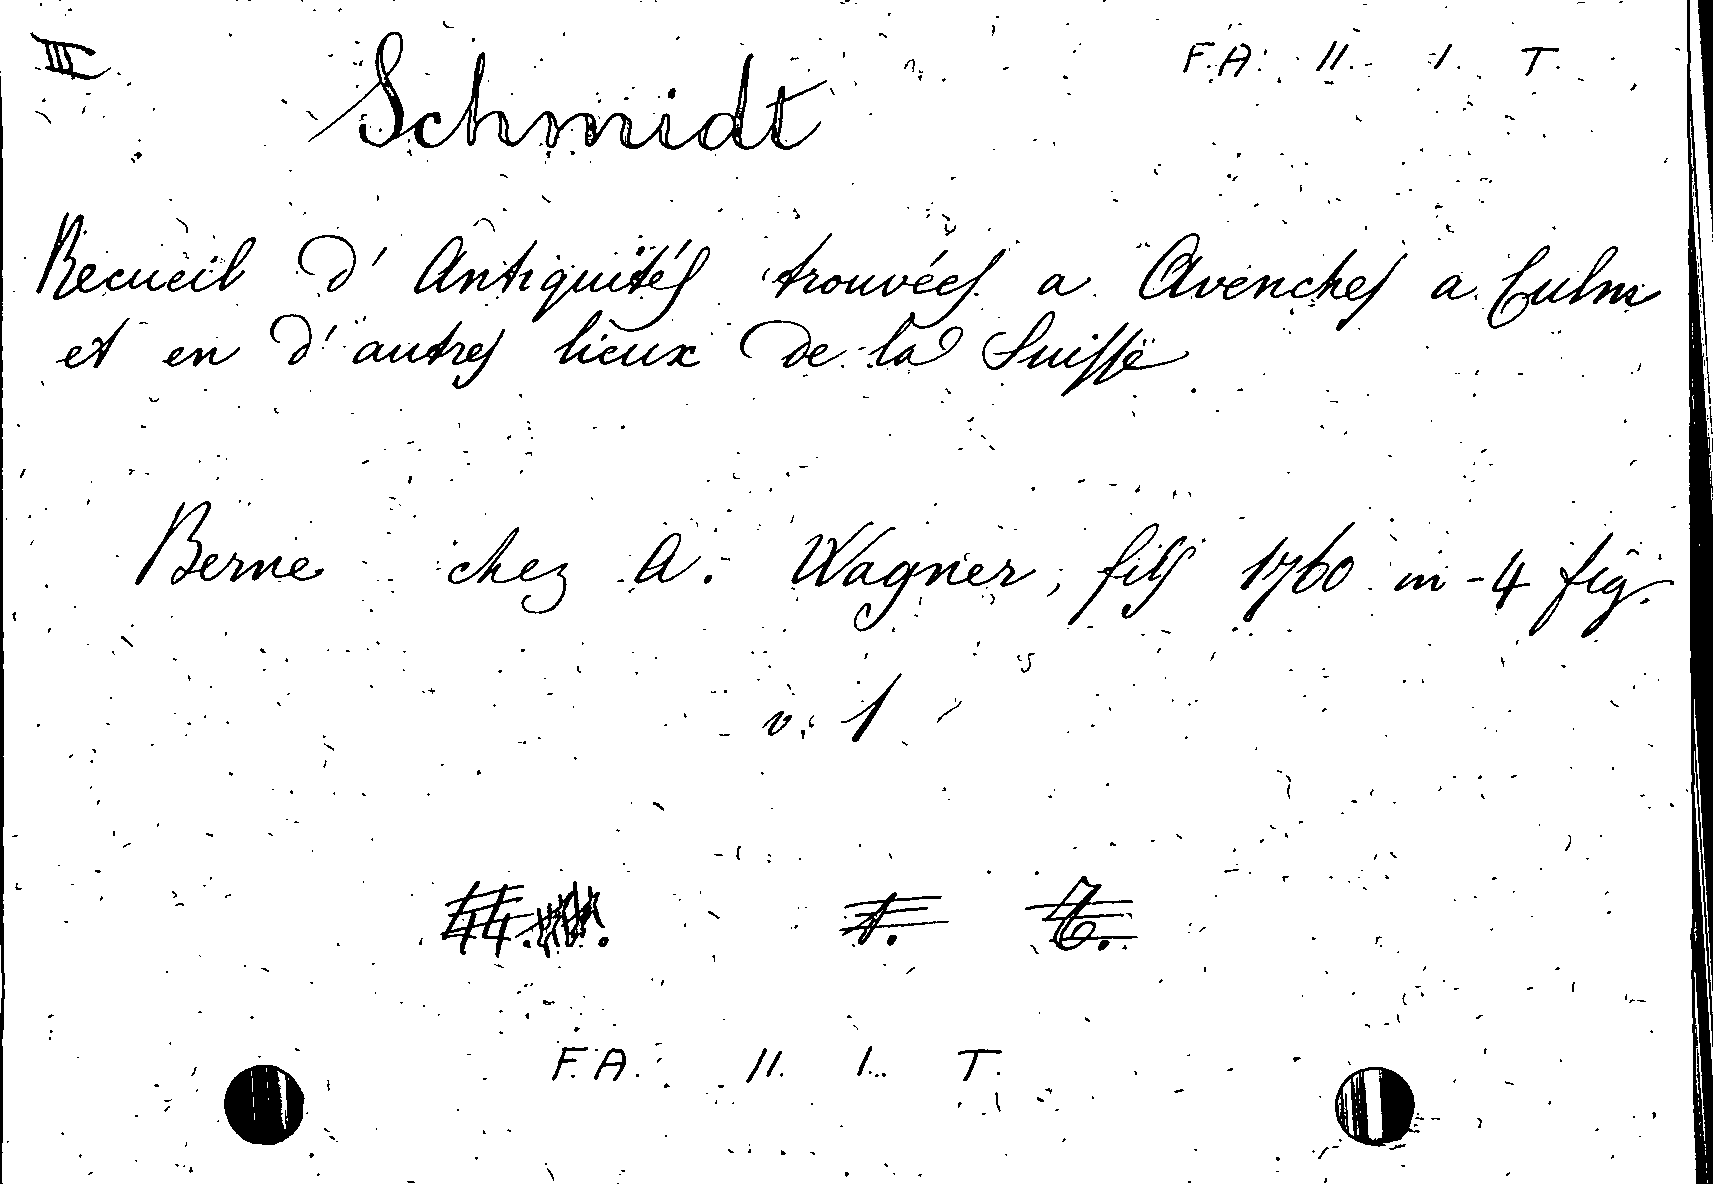 III F.A. II. I. T.
Schmidt
Recueil d'Antiquités trouvées a Avenches a Culm
et en d'autres lieux de la Suisse
Berne chez A. Wagner, fils 1760 in-4 fig.
v. 1
44. 1. T.
F.A. II. I. T.